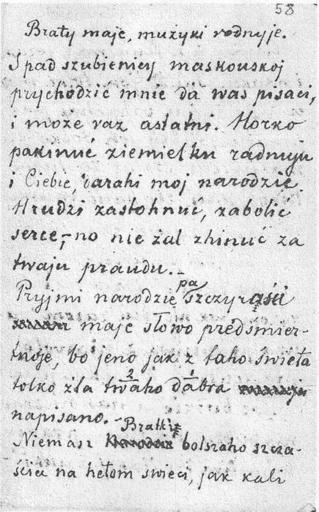 58
Braty maje, mużyki rodnyje.
S pad szubienicy maskouskoj
prychodzić mnie da was pisaci,
i może raz astatni. Horko
pakinuć ziemielku radnuju
i Ciebie, darahi moj narodzie.
Hrudzi zastohnuć, zabolić
serce, – no nie żal zhinuć za
twaju praudu. –
pa
Pryjmi narodzie szczyrości
maje słowo predśmier-
tnoje, bo jeno jak z taho świeta
2 1
tolko dla twaho dabra
napisano.
Bratki
Niemasz bolszaho szcza-
ścia na hetom swieci, jak kali